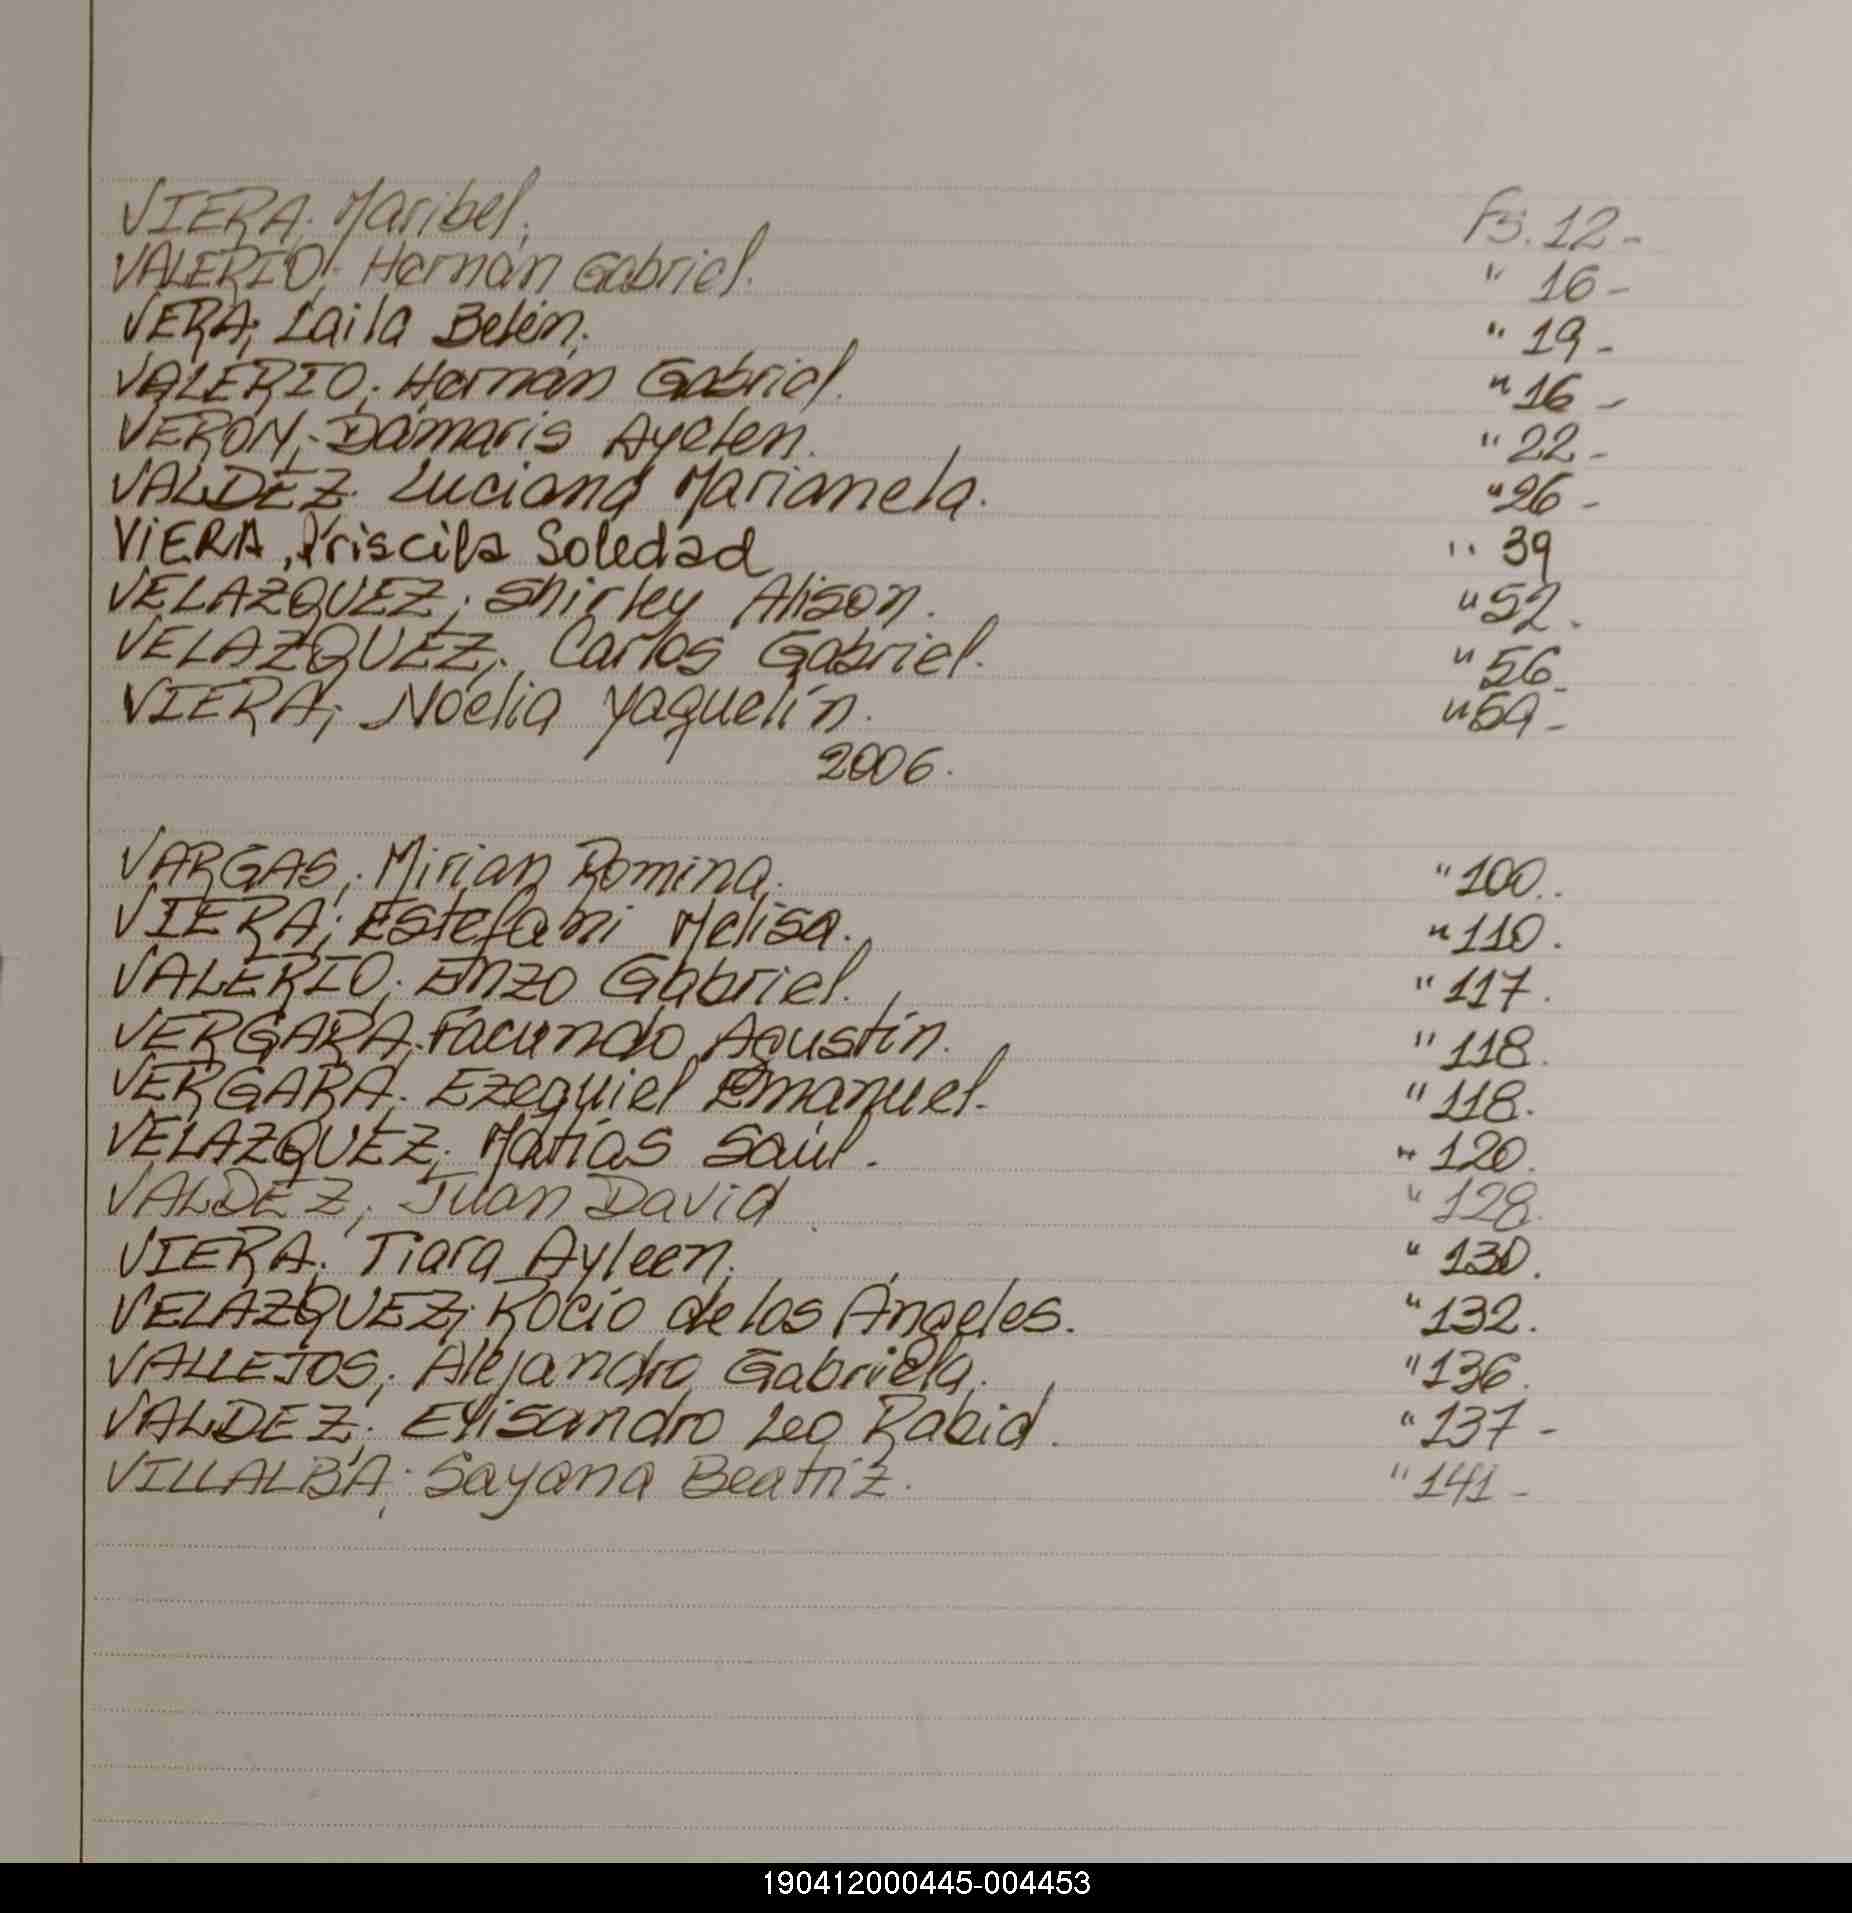 VIERA; Maribel. Fs. 12-
VALERIO; Hernán Gabriel. " 16-
VERA; Laila Belén. " 19-
VALERIO; Hernán Gabriel. " 16-
VERON; Dámaris Ayelen. " 22-
VALDEZ; Luciana Marianela. " 26-
ViERA, Priscila Soledad " 39
VELAZQUEZ; Shirley Alison. " 52.
VELAZQUEZ; Carlos Gabriel. " 56-
VIERA; Noelia Yaquelín. " 59-
2006.
VARGAS; Mirian Romina. " 100.
VIERA; Estefani Melisa. " 110.
VALERIO; Enzo Gabriel. " 117.
VERGARA; Facundo Agustín. " 118.
VERGARA; Ezequiel Emanuel. " 118.
VELAZQUEZ; Matías Saúl. " 120.
VALDEZ; Juan David " 128.
VIERA; Tiara Ayleen. " 130.
VELAZQUEZ; Rocío de los Ángeles. " 132.
VALLEJOS; Alejandro Gabriela. " 136.
VALDEZ; Elisandro Leo Rabid. " 137-
VILLALBA; Sayana Beatríz. " 141-
190412000445-004453